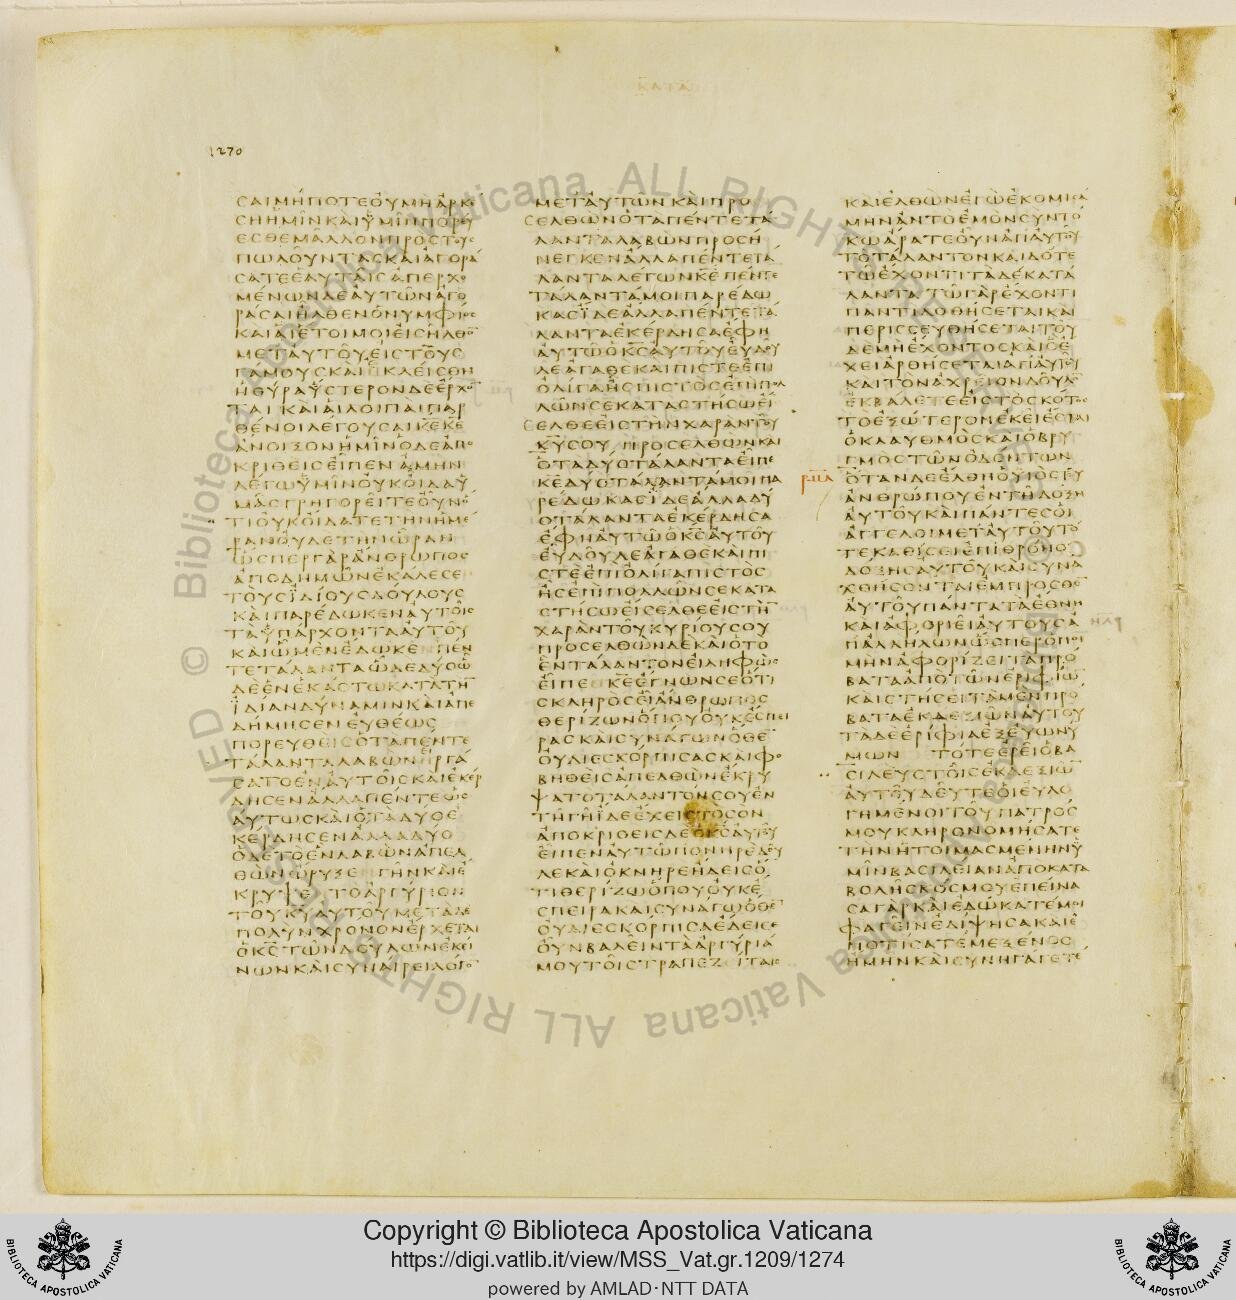 1270
ΣΑΙΜΗΠΟΤΕΟΥΜΗΑΡΚΕ
ΣΗΗΜΙΝΚΑΙΥΜΙΝΠΟΡΕΥ
ΕΣΘΕΜΑΛΛΟΝΠΡΟΣΤΟΥΣ
ΠΩΛΟΥΝΤΑΣΚΑΙΑΓΟΡΑ
ΣΑΤΕΕΑΥΤΑΙΣΑΠΕΡΧΟ
ΜΕΝΩΝΔΕΑΥΤΩΝΑΓΟ
ΡΑΣΑΙΗΛΘΕΝΟΝΥΜΦΙΟΣ
ΚΑΙΑΙΕΤΟΙΜΟΙΕΙΣΗΛΘΟ̅
ΜΕΤΑΥΤΟΥΕΙΣΤΟΥΣ
ΓΑΜΟΥΣΚΑΙΕΚΛΕΙΣΘΗ
ΗΘΥΡΑΥΣΤΕΡΟΝΔΕΕΡΧΟ̅
ΤΑΙ ΚΑΙΑΙΛΟΙΠΑΙΠΑΡ
ΘΕΝΟΙΛΕΓΟΥΣΑΙΚ̅Ε̅Κ̅Ε̅
ΑΝΟΙΞΟΝΗΜΙΝΟΔΕΑΠΟ
ΚΡΙΘΕΙΣΕΙΠΕΝΑΜΗΝ
ΛΕΓΩΥΜΙΝΟΥΚΟΙΔΑΥ
ΜΑΣΓΡΗΓΟΡΕΙΤΕΟΥΝΟ
ΤΙΟΥΚΟΙΔΑΤΕΤΗΝΗΜΕ
ΡΑΝΟΥΔΕΤΗΝΩΡΑΝ
ΩΣΠΕΡΓΑΡΑΝΘΡΩΠΟΣ
ΑΠΟΔΗΜΩΝΕΚΑΛΕΣΕ
ΤΟΥΣΙΔΙΟΥΣΔΟΥΛΟΥΣ
ΚΑΙΠΑΡΕΔΩΚΕΝΑΥΤΟΙΣ
ΤΑΥΠΑΡΧΟΝΤΑΑΥΤΟΥ
ΚΑΙΩΜΕΝΕΔΩΚΕ ΠΕΝ
ΤΕΤΑΛΑΝΤΑΩΔΕΔΥΟΩ
ΔΕΕΝΕΚΑΣΤΩΚΑΤΑΤΗ̅
ΙΔΙΑΝΔΥΝΑΜΙΝΚΑΙΑΠΕ
ΔΗΜΗΣΕΝΕΥΘΕΩΣ
ΠΟΡΕΥΘΕΙΣΟΤΑΠΕΝΤΕ
ΤΑΛΑΝΤΑΛΑΒΩΝΗΡΓΑ
ΣΑΤΟΕΝΑΥΤΟΙΣΚΑΙΕΚΕΡ
ΔΗΣΕΝΑΛΛΑΠΕΝΤΕΩΣ
ΑΥΤΩΣΚΑΙΟΤΑΔΥΟΕ
ΚΕΡΔΗΣΕΝΑΛΛΑΔΥΟ
ΟΔΕΤΟΕΝΛΑΒΩΝΑΠΕΛ
ΘΩΝΩΡΥΞΕ ΓΗΝΚΑΙΕ
ΚΡΥΨΕ ΤΟΑΡΓΥΡΙΟΝ
ΤΟΥΚ̅Υ̅ΑΥΤΟΥΜΕΤΑΔΕ
ΠΟΛΥΝΧΡΟΝΟΝΕΡΧΕΤΑΙ
ΟΚ̅Σ̅ΤΩΝΔΟΥΛΩΝΕΚΕΙ
ΝΩΝΚΑΙΣΥΝΑΙΡΕΙΛΟΓΟ̅
ΜΕΤΑΥΤΩΝΚΑΙΠΡΟ
ΣΕΛΘΩΝΟΤΑΠΕΝΤΕΤΑ
ΛΑΝΤΑΛΑΒΩΝΠΡΟΣΗ
ΝΕΓΚΕΝΑΛΛΑΠΕΝΤΕΤΑ
ΛΑΝΤΑΛΕΓΩΝΚ̅Ε̅ΠΕΝΤΕ
ΤΑΛΑΝΤΑΜΟΙΠΑΡΕΔΩ
ΚΑΣΙΔΕΑΛΛΑΠΕΝΤΕΤΑ
ΛΑΝΤΑΕΚΕΡΔΗΣΑΕΦΗ
ΑΥΤΩΟΚ̅Σ̅ΑΥΤΟΥΕΥΔΟΥ
ΛΕΑΓΑΘΕΚΑΙΠΙΣΤΕΕΠΙ
ΟΛΙΓΑΗΣΠΙΣΤΟΣΕΠΙΠΟΛ
ΛΩΝΣΕΚΑΤΑΣΤΗΣΩΕΙ
ΣΕΛΘΕΕΙΣΤΗΝΧΑΡΑΝΤΟΥ
Κ̅Υ̅ΣΟΥ ΠΡΟΣΕΛΘΩΝΚΑΙ
ΟΤΑΔΥΟΤΑΛΑΝΤΑΕΙΠΕ
Κ̅Ε̅ΔΥΟΤΑΛΑΝΤΑΜΟΙΠΑ
ΡΕΔΩΚΑΣΙΔΕΑΛΛΑΔΥ
ΟΤΑΛΑΝΤΑΕΚΕΡΔΗΣΑ
ΕΦΗΑΥΤΩΟΚ̅Σ̅ΑΥΤΟΥ
ΕΥΔΟΥΛΕΑΓΑΘΕΚΑΙΠΙ
ΣΤΕΕΠΙΟΛΙΓΑΠΙΣΤΟΣ
ΗΣΕΠΙΠΟΛΛΩΝΣΕΚΑΤΑ
ΣΤΗΣΩΕΙΣΕΛΘΕΕΙΣΤΗ̅
ΧΑΡΑΝΤΟΥΚΥΡΙΟΥΣΟΥ
ΠΡΟΣΕΛΘΩΝΔΕΚΑΙΟΤΟ
ΕΝΤΑΛΑΝΤΟΝΕΙΛΗΦΩΣ
ΕΙΠΕ Κ̅Ε̅ΕΓΝΩΝΣΕΟΤΙ
ΣΚΛΗΡΟΣΕΙΑΝΘΡΩΠΟΣ
ΘΕΡΙΖΩΝΟΠΟΥΟΥΚΕΣΠΕΙ
ΡΑΣΚΑΙΣΥΝΑΓΩΝΟΘΕ̅
ΟΥΔΙΕΣΚΟΡΠΙΣΑΣΚΑΙΦΟ
ΒΗΘΕΙΣΑΠΕΛΘΩΝΕΚΡΥ
ΨΑΤΟΤΑΛΑΝΤΟΝΣΟΥΕΝ
ΤΗΓΗΙΔΕΕΧΕΙΣΤΟΣΟΝ
ΑΠΟΚΡΙΘΕΙΣΔΕΟΚ̅Σ̅ΑΥΤΟΥ
ΕΙΠΕΝΑΥΤΩΠΟΝΗΡΕΔΟΥ
ΛΕΚΑΙΟΚΝΗΡΕΗΔΕΙΣΟ
ΤΙΘΕΡΙΖΩΟΠΟΥΟΥΚΕ
ΣΠΕΙΡΑΚΑΙΣΥΝΑΓΩΟΘΕ̅
ΟΥΔΙΕΣΚΟΡΠΙΣΑΕΔΕΙΣΕ
ΟΥΝΒΑΛΕΙΝΤΑΑΡΓΥΡΙΑ
ΜΟΥΤΟΙΣΤΡΑΠΕΖΕΙΤΑΙΣ
ΚΑΙΕΛΘΩΝΕΓΩΕΚΟΜΙΣΑ
ΜΗΝΑΝΤΟΕΜΟΝΣΥΝΤΟ
ΚΩΑΡΑΤΕΟΥΝΑΠΑΥΤΟΥ
ΤΟΤΑΛΑΝΤΟΝΚΑΙΔΟΤΕ
ΤΩΕΧΟΝΤΙΤΑΔΕΚΑΤΑ
ΛΑΝΤΑ ΤΩΓΑΡΕΧΟΝΤΙ
ΠΑΝΤΙΔΟΘΗΣΕΤΑΙΚΑΙ
ΠΕΡΙΣΣΕΥΘΗΣΕΤΑΙΤΟΥ
ΔΕΜΗΕΧΟΝΤΟΣΚΑΙΟΕ
ΧΕΙΑΡΘΗΣΕΤΑΙΑΠΑΥΤΟΥ
ΚΑΙΤΟΝΑΧΡΕΙΟΝΔΟΥΛΟ̅
ΕΚΒΑΛΕΤΕΕΙΣΤΟΣΚΟΤΟΣ
ΤΟΕΞΩΤΕΡΟΝΕΚΕΙΕΣΤΑΙ
ΟΚΛΑΥΘΜΟΣΚΑΙΟΒΡΥ
ΓΜΟΣΤΩΝΟΔΟΝΤΩΝ
ΟΤΑΝΔΕΕΛΘΗΟΥΙΟΣΤΟΥ
ΑΝΘΡΩΠΟΥΕΝΤΗΔΟΞΗ
ΑΥΤΟΥΚΑΙΠΑΝΤΕΣΟΙ
ΑΓΓΕΛΟΙΜΕΤΑΥΤΟΥΤΟ
ΤΕΚΑΘΙΣΕΙΕΠΙΘΡΟΝΟΥ
ΔΟΞΗΣΑΥΤΟΥΚΑΙΣΥΝΑ
ΧΘΗΣΟΝΤΑΙΕΜΠΡΟΣΘΕ̅
ΑΥΤΟΥΠΑΝΤΑΤΑΕΘΝΗ
ΚΑΙΑΦΟΡΙΕΙΑΥΤΟΥΣΑ
ΠΑΛΛΗΛΩΝΩΣΠΕΡΟΠΟΙ
ΜΗΝΑΦΟΡΙΖΕΙΤΑΠΡΟ
ΒΑΤΑΑΠΟΤΩΝΕΡΙΦΙΩ̅
ΚΑΙΣΤΗΣΕΙΤΑΜΕΝΠΡΟ
ΒΑΤΑΕΚΔΕΞΙΩΝΑΥΤΟΥ
ΤΑΔΕΕΡΙΦΙΑΕΞΕΥΩΝΥ
ΜΩΝ ΤΟΤΕΕΡΕΙΟΒΑ
ΣΙΛΕΥΣΤΟΙΣΕΚΔΕΞΙΩ̅
ΑΥΤΟΥΔΕΥΤΕΟΙΕΥΛΟ
ΓΗΜΕΝΟΙΤΟΥΠΑΤΡΟΣ
ΜΟΥΚΛΗΡΟΝΟΜΗΣΑΤΕ
ΤΗΝΗΤΟΙΜΑΣΜΕΝΗΝΥ
ΜΙΝΒΑΣΙΛΕΙΑΝΑΠΟΚΑΤΑ
ΒΟΛΗΣΚΟΣΜΟΥΕΠΕΙΝΑ
ΣΑΓΑΡΚΑΙΕΔΩΚΑΤΕΜΟΙ
ΦΑΓΕΙΝΕΔΙΨΗΣΑΚΑΙΕ
ΠΟΤΙΣΑΤΕΜΕΞΕΝΟΣ
ΗΜΗΝΚΑΙΣΥΝΗΓΑΓΕΤΕ
© Biblioteca Apostolica Vaticana ALL RIGHTS RESERVED
© Biblioteca Apostolica Vaticana ALL RIGHTS RESERVED
BIBLIOTECA APOSTOLICA VATICANA
Copyright © Biblioteca Apostolica Vaticana
https://digi.vatlib.it/view/MSS_Vat.gr.1209/1274
powered by AMLAD·NTT DATA
BIBLIOTECA APOSTOLICA VATICANA